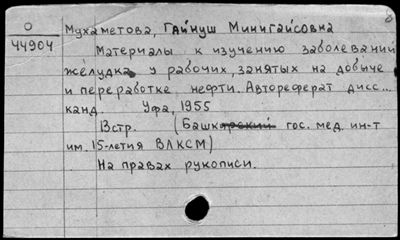 8
О
44904
Мухаметова, Гайнуш Минигайсовна
Материалы к изучению заболеваний
желудка у рабочих, занятых на добыче
и переработке нефти. Автореферат дисс...
канд. Уфа, 1955
В стр. (Башкирский гос. мед. ин-т
им. 15-летия ВЛКСМ)
На правах рукописи.